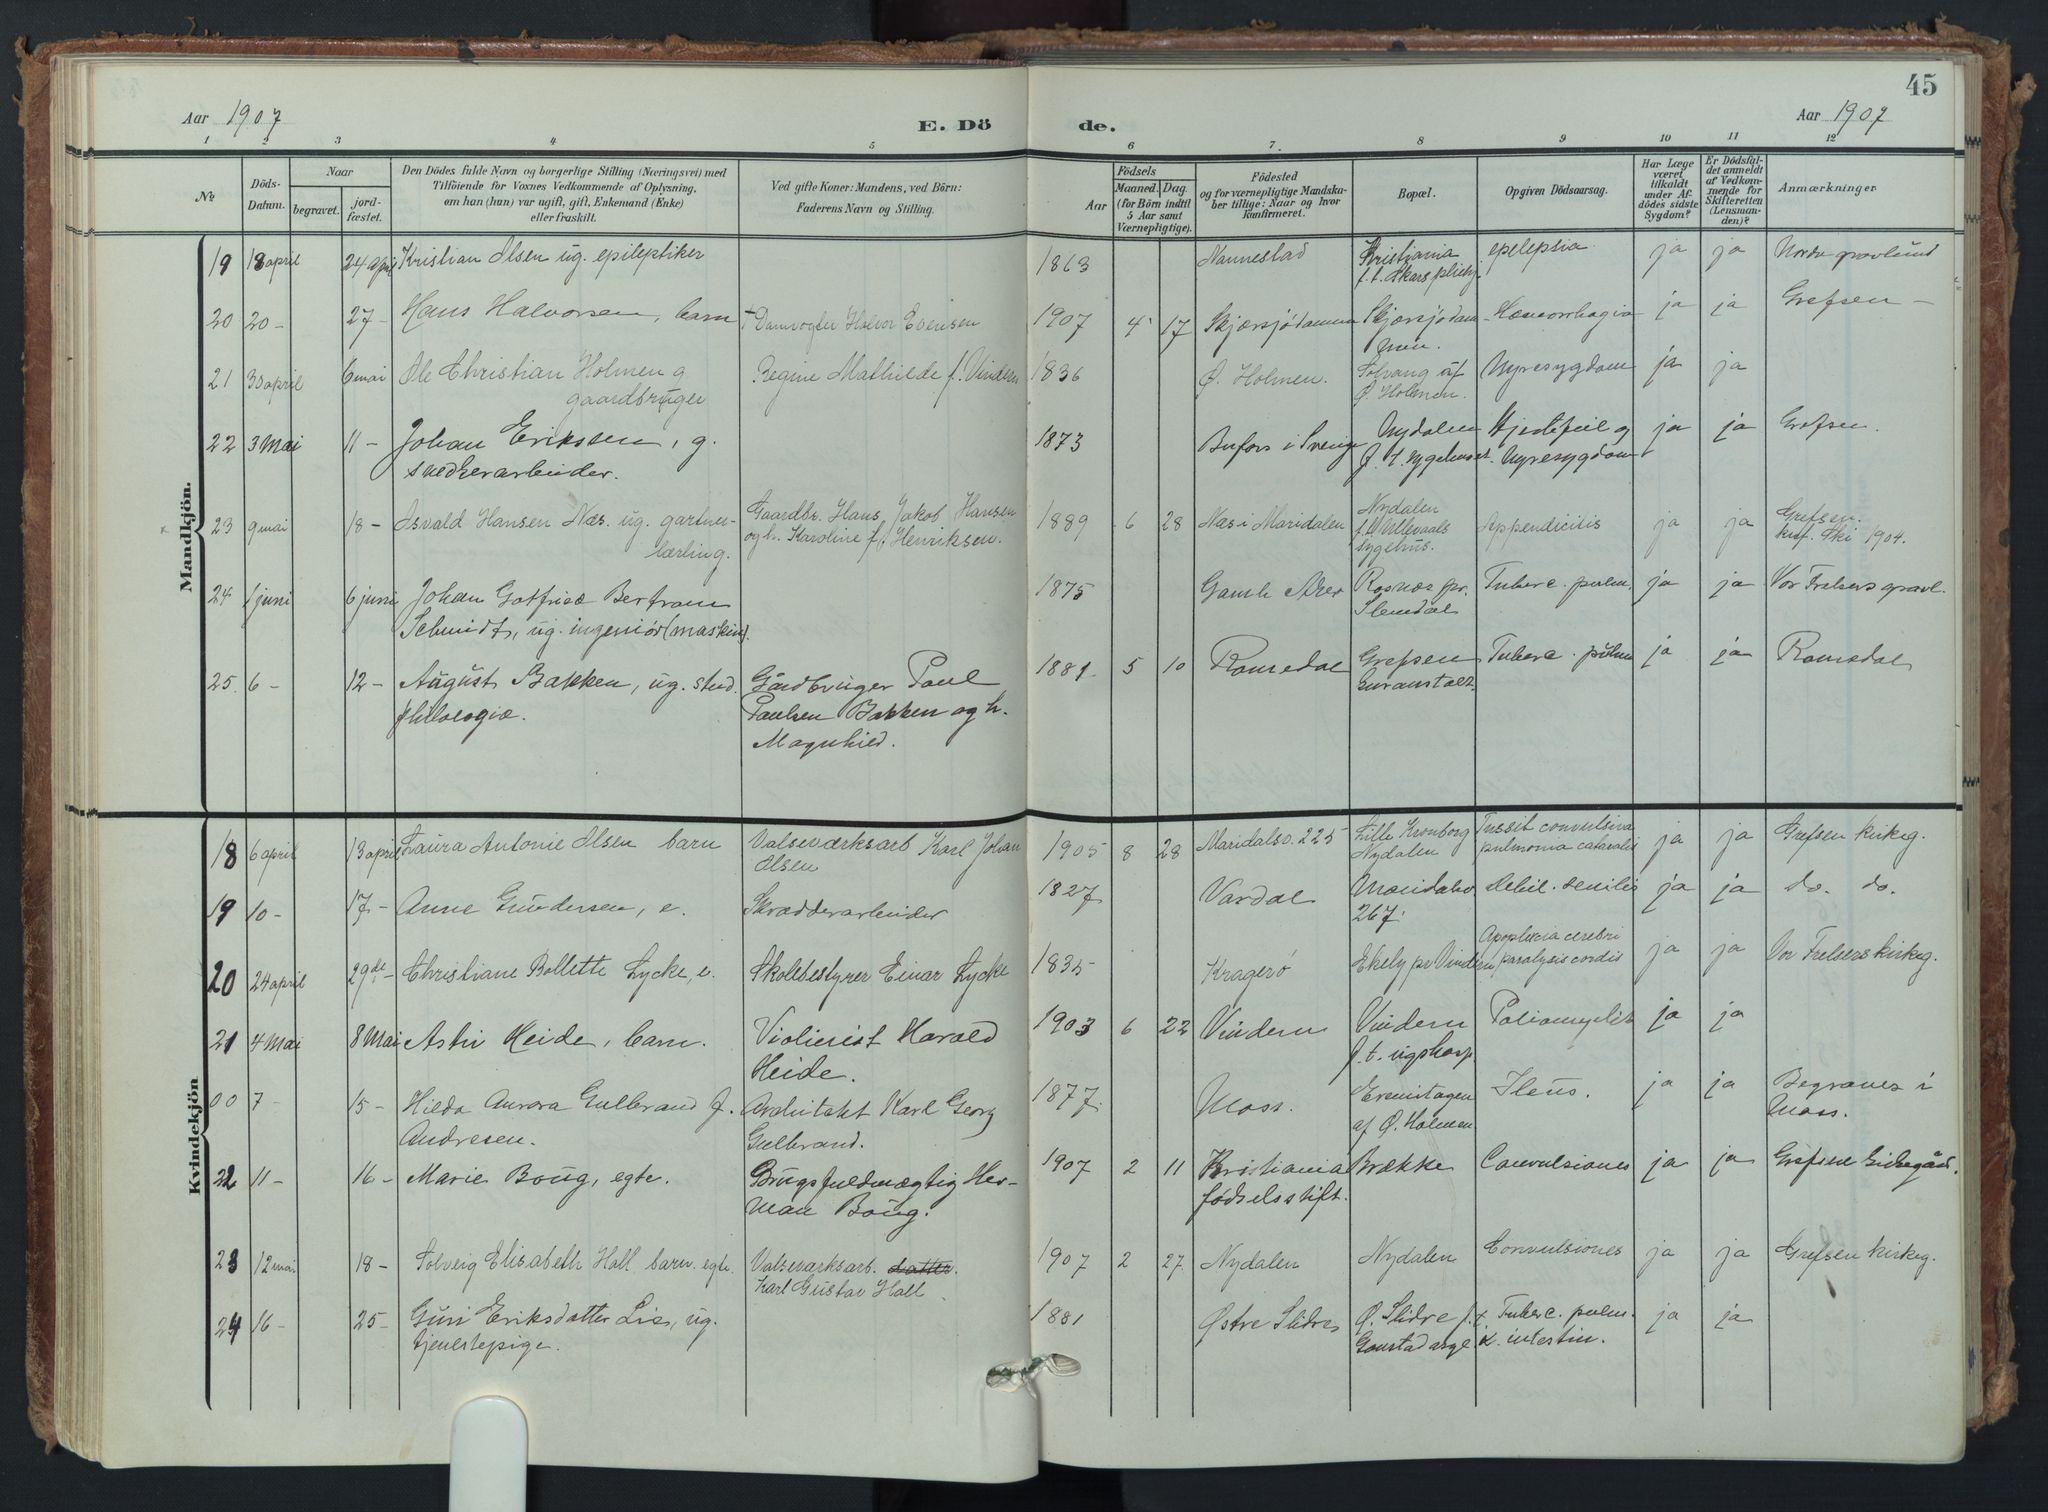 45
Aar 1907
E. Dö
de.
Aar 1907
1 2 3 4 5 6 7. 8 9 10 11 12
No
Döds-Datum.
Naar
begravet.
jord-fæstet.
Den Dödes fulde Navn og borgerlige Stilling (Næringsvei) med
Tilföiende for Voxnes Vedkommende af Oplysning,
om han (hun) var ugift, gift, Enkemand (Enke)
eller fraskilt.
Ved gifte Koner: Mandens, ved Börn:
Faderens Navn og Stilling.
Födsels
Aar
Maaned. Dag.
(for Börn indtil
5 Aar samt
Værnepligtige).
Födested
og for værnepligtige Mandska-
ber tillige: Naar og hvor
Konfirmeret.
Bopæl.
Opgiven Dödsaarsag.
Har Læge
været
tilkaldt
under Af-
dödes sidste
Sygdom?
Er Dödsfal-
det anmeldt
af Vedkom-
mende for
Skifteretten
(Lensman-
den)?
Anmærkninger
Mandkjön.
19 18 april 24 april Kristian Olsen ug. epileptiker 1863 Nannestad Kristiania epelepsia. ja ja Nordre gravlund
20 20 - 27 - Hans Halvorsen, barn + Damvogter Halvor Evensen 1907 4 17 Skjærsjödammen Skjærsjödam- Hæmorrhagia ja ja Grefsen -
men.
21 30 april 6 mai Ole Christian Holmen g Regine Mathilde f. Vindern 1836 Ø. Holmen. Solvang af Nyresygdom ja ja
gaardbruger Ø. Holmen.
22 3 Mai 11 - Johan Erikssen, g. 1873 Bufors i Sverige Nydalen Hjertefeil og ja ja Grefsen.
snedkerarbeider. f. t. sygehuset. Nyresygdom
23 9 mai 18 - Asvald Hansen Næs. ug. gartner- Gaardbr. Hans Jakob Hansen 1889 6 28 Næs i Maridalen Nydalen Appendicitis ja ja Grefsen.
lærling. og h. Karoline f. Henriksen. f. t. Ullevaals sygehus. konf. Ski 1904.
24 1 juni 6 juni Johan Gotfried Bertram 1875 Gamle Aker Rosnæs pr. Tuberc. pulm. ja ja Vor Frelsers gravl.
Schmidt, ug. ingeniör (maskin). Slemdal
25. 6 - 12 - August Bakken, ug. stud. Gårdbruger Paul 1881. 5 10 Romsdal Grefsen Tuberc. pulm ja ja Romsdal
philologiæ. Paulsen Bakken og h. Curanstalt.
Magnhild.
Kvindekjön
18 6 april 13 april Laura Antonie Olsen barn Valseværksarb Karl Johan 1905 8 28 Maridalsv. 225 Lille Kronborg Tussit convulsiva ja ja Grefsen kirkeg.
Olsen Nydalen pulmonia cataralis
19 10 - 17 - Anne Gundersen, e. Skrædderarbeider 1827 Vardal Maridalsv. Debil. senilis ja ja do. do.
267.
20 24 april 29de - Christiane Bollette Lycke, e. Skolebestyrer Einar Lycke 1835 Kragerø Ekely pr Vindern Apoplexia cerebri ja ja Vor Frelsers kirkeg.
paralysis cordis
21 4 Mai 8 Mai Astri Heide, barn. Violinist Harald 1903 6 22 Vindern Vindern Poliomyelit ja ja
Heide. f. t.
00 7 - 15 - Hilda Aurora Gulbrand f. Arkitekt Karl Georg 1877. Moss. Eremitagen Ileus. ja ja Begraves i
Andresen. Gulbrand. af Ø. Holmen Moss.
22 11 - 16 - Marie Boug, egte. Brugsfuldmægtig Her- 1907 2 11 Kristiania Brække Convulsiones ja ja Grefsens Kirkegård.
man Boug. födselsstift.
23 12 mai 18 - Solveig Elisabeth Hall barn. egte. Valseværksarb. datter. 1907 2 27. Nydalen Nydalen Convulsiones ja ja Grefsen kirkeg.
Karl Gustav Hall
24 16 - 25 - Guri Eriksdatter Lie, ug. 1881 Østre Slidre Ø. Slidre f. t. Tuberc. pulm. ja ja
tjenestepige. Gaustad asyl. & intestin.